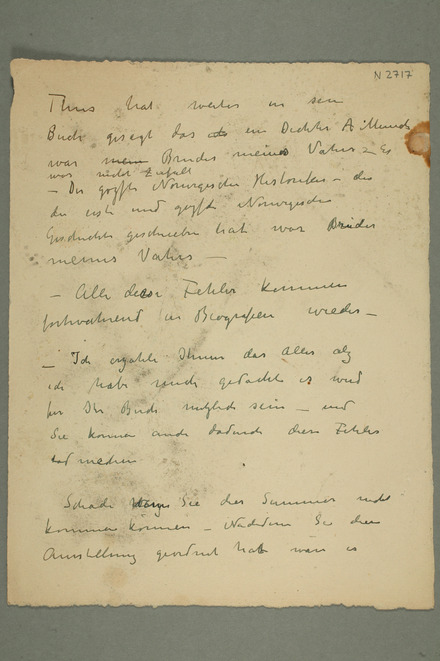 N 2717
Thiis hat weiter in sein
Buch gesagt das ein Dichter A Munch
war mein Bruder meines Vaters – Es
war nicht
– Der Norwegische Historiker – der
die erste und Norwegische
Geschichte geschrieben hat war Bruder
meines Vaters –
– Alle diese Fehler kommen
fortwährend in Biografien wieder –
– Ich erzähle Ihnen das Alles
ich habe gedacht es wird
für Ihr Buch nützlich sein – und
Sie können auch dadurch diese Fehler
Schade Sie der Sommer nicht
kommen können – Nachdem Sie die
Ausstellung geordnet hat wäre es